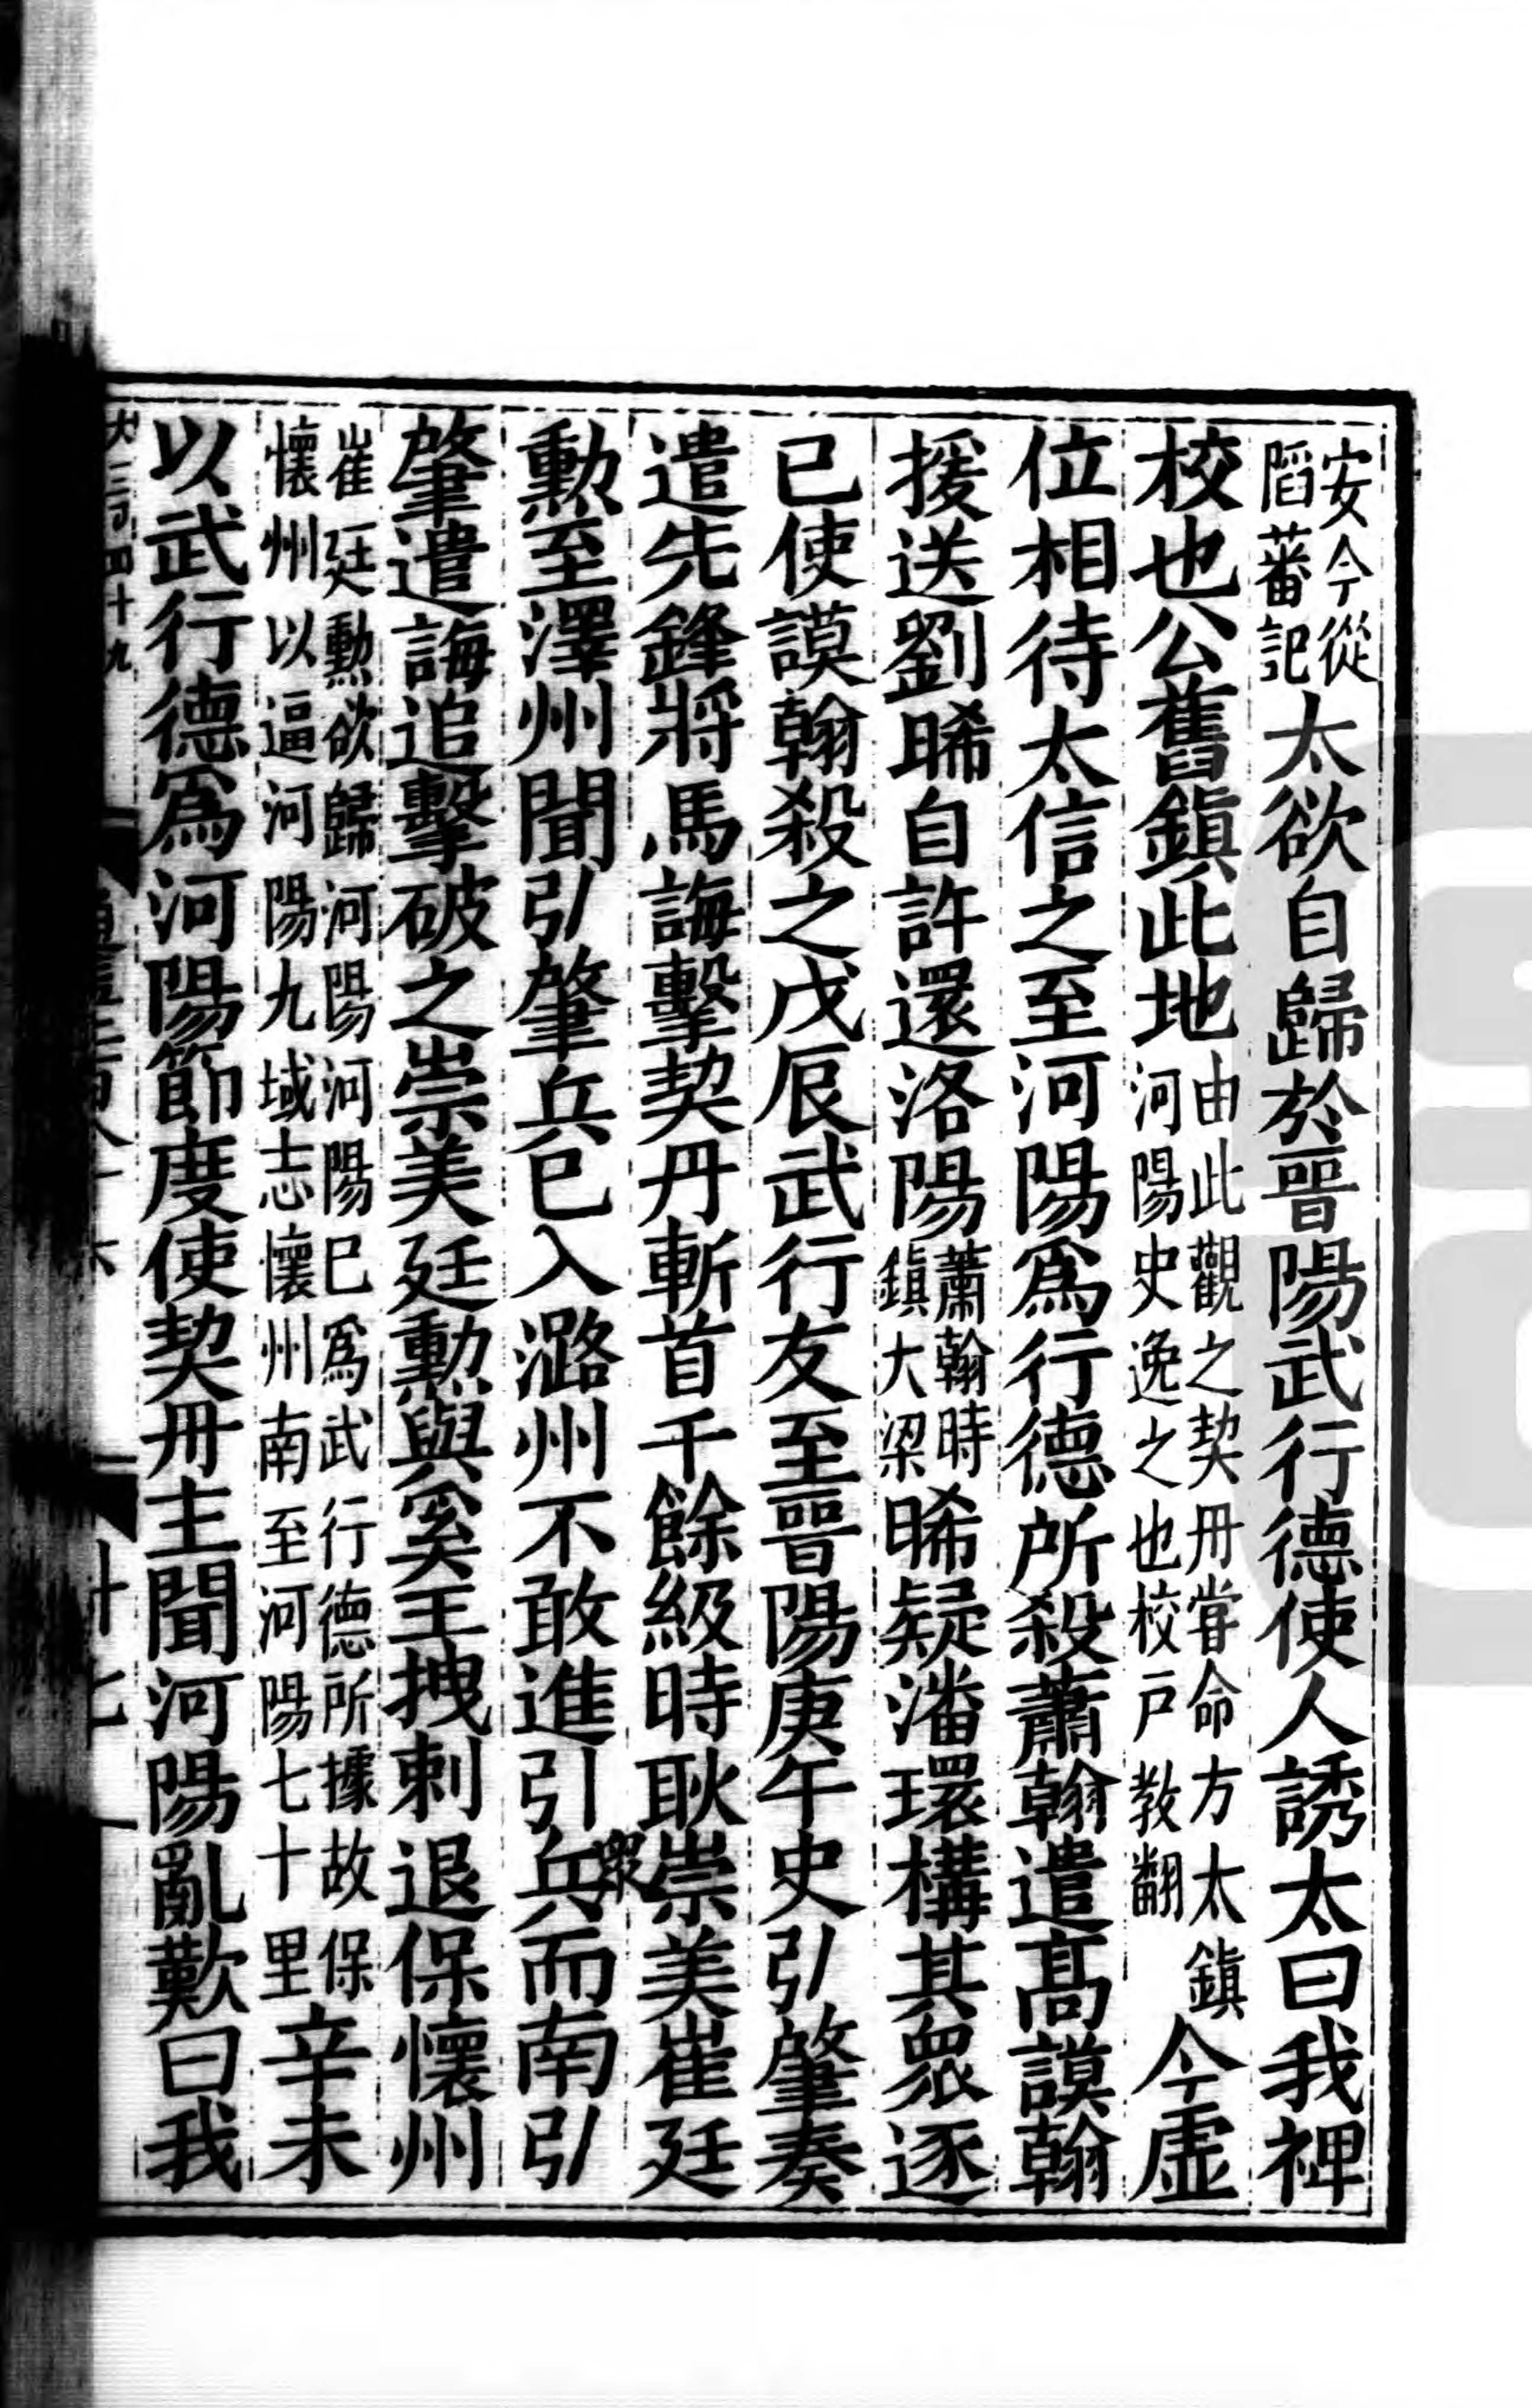 安今從陷蕃記太欲自歸於晉陽武行德使人誘太曰我裨
校也公舊鎮此地由此觀之契丹甞命方太鎮河陽史逸之也校戸教翻今虛
位相待太信之至河陽爲行德所殺蕭翰遣髙謨翰
援送劉晞自許還洛陽蕭翰時鎮大梁晞疑潘環構其衆逐
已使謨翰殺之戊辰武行友至晉陽庚午史弘肇奏
遣先鋒將馬誨擊契丹斬首千餘級時耿崇美崔廷
勳至澤州聞弘肇兵已入潞州不敢進引兵衆而南弘
肇遣誨追擊破之崇美廷勳與奚王拽剌退保懷州
崔廷勳欲歸河陽河陽已爲武行德所據故保懷州以逼河陽九域志懷州南至河陽七十里辛未
以武行德爲河陽節度使契丹主聞河陽亂歎曰我